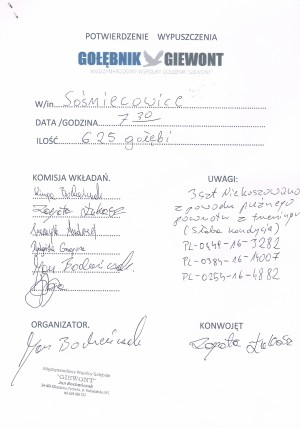 POTWIERDZENIE WYPUSZCZENIA
GOŁĘBNIK GIEWONT
MIĘDZYNARODOWY WSPÓLNY GOŁĘBNIK "GIEWONT"
W/in Sośnicowice
DATA /GODZINA 7 30
ILOŚĆ 625 gołębi
KOMISJA WKŁADAŃ.
Zapota Łukasz
Jan Bocheńczak
UWAGI:
3 szt Niekoszowano
z powodu późnego
powrotu z treningu
(słaba kondycja)
PL-0448-16-3282
PL-0384-16-14007
PL-0255-16-4882
ORGANIZATOR.
Jan
KONWOJĘT
Zapota Łukasz
Międzynarodowy Wspólny Gołębnik
"GIEWONT"